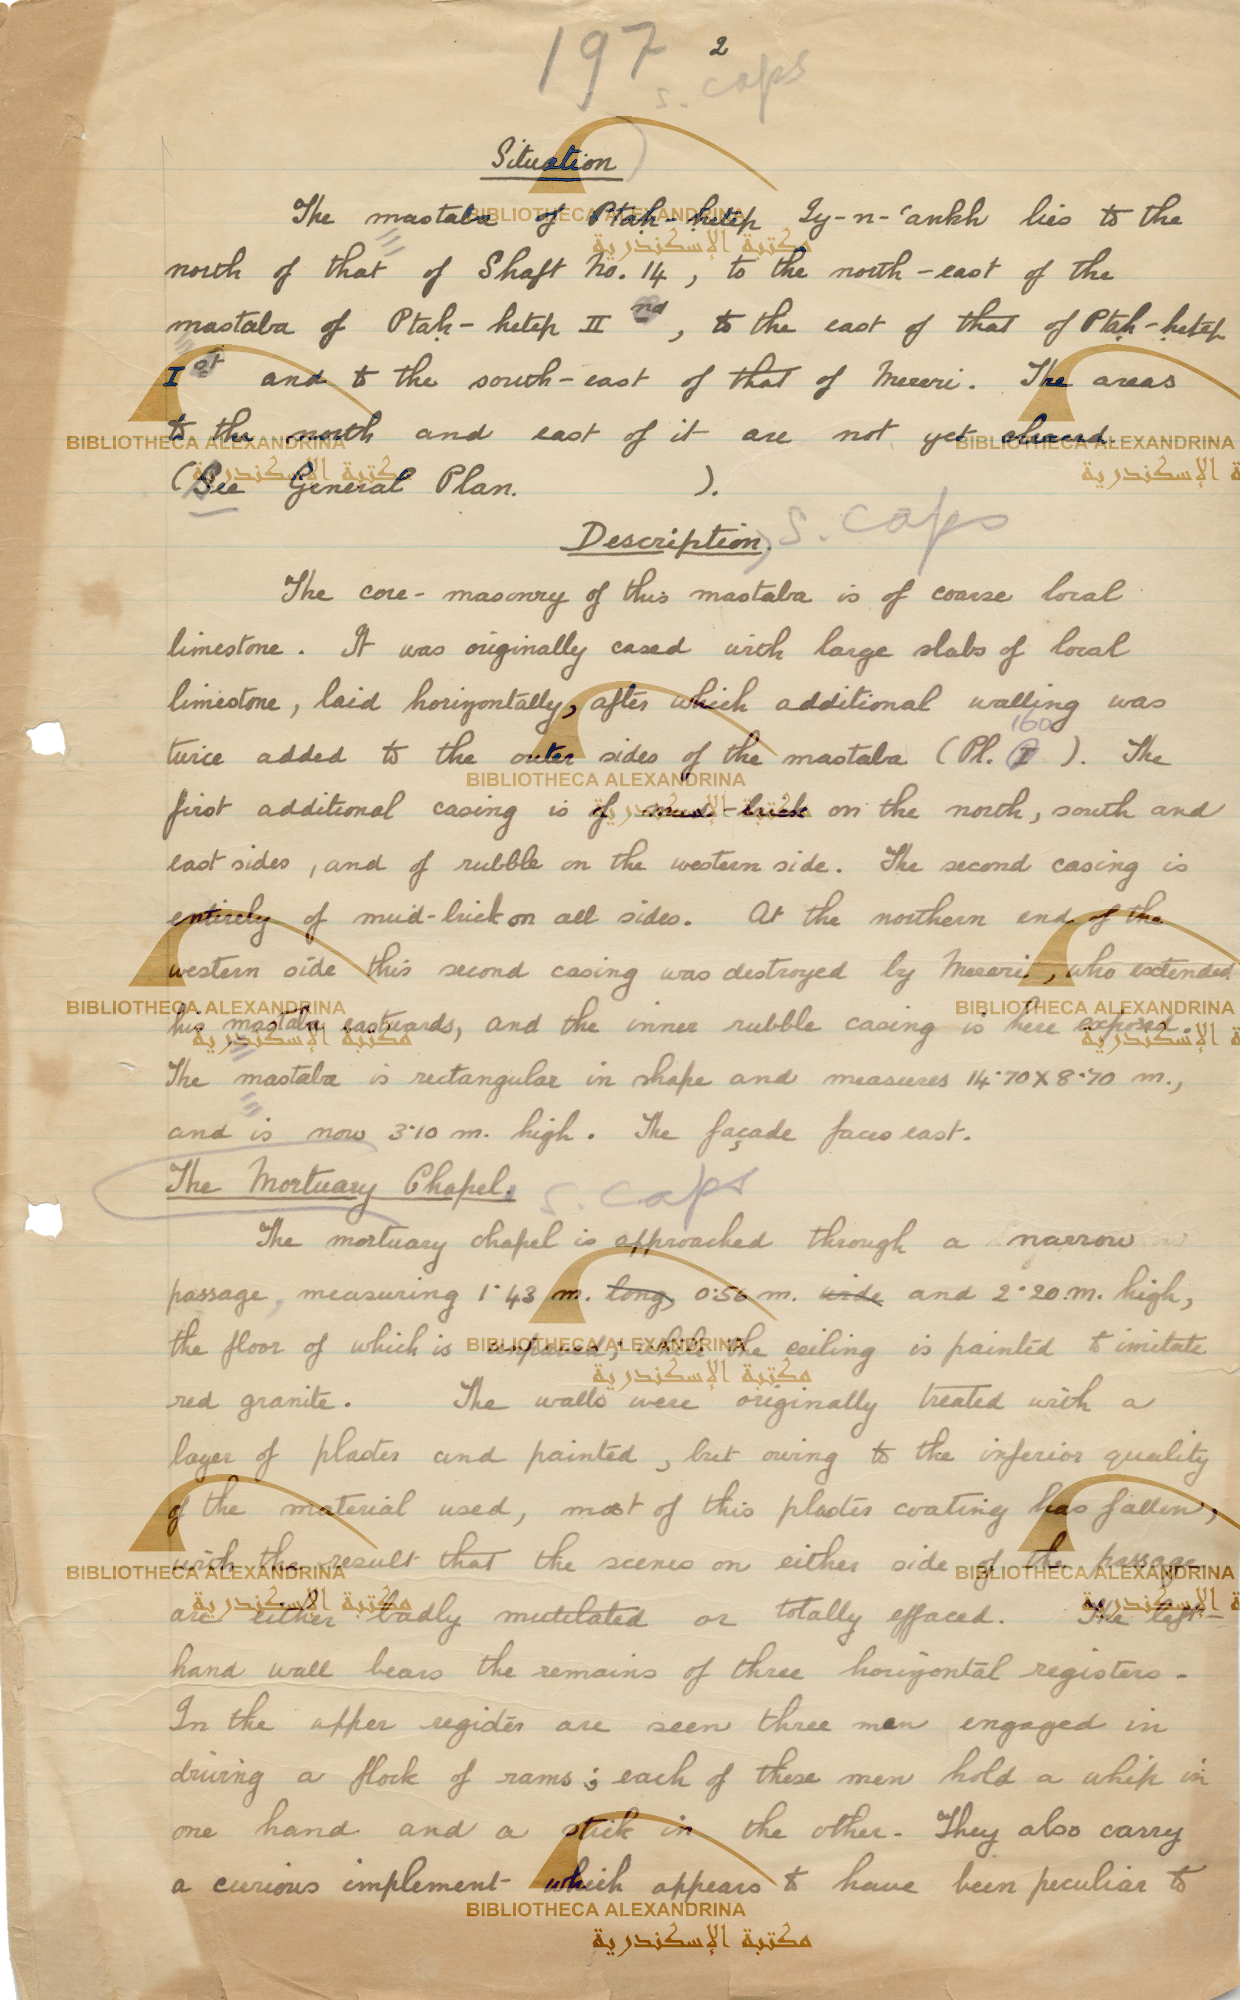 197 2
s. caps
Situation
The mastaba of Ptaḥ-ḥetep Iy-n-ʿankh lies to the
north of that of Shaft No. 14, to the north-east of the
mastaba of Ptaḥ-ḥetep II nd, to the east of that of Ptaḥ-ḥetep
I st and to the south-east of that of Mereri. The areas
to the north and east of it are not yet cleared.
(See General Plan. ).
Description. s. caps
The core-masonry of this mastaba is of coarse local
limestone. It was originally cased with large slabs of local
limestone, laid horizontally, after which additional walling was
160
twice added to the outer sides of the mastaba (Pl. I ). The
first additional casing is of mud-brick on the north, south and
east sides, and of rubble on the western side. The second casing is
entirely of mud-brick on all sides. At the northern end of the
western side this second casing was destroyed by Mereri, who extended
his mastaba eastwards, and the inner rubble casing is here exposed.
The mastaba is rectangular in shape and measures 14·70 X 8·70 m.,
and is now 3·10 m. high. The façade faces east.
The Mortuary Chapel. s. caps
The mortuary chapel is approached through a narrow
passage, measuring 1·43 m. long, 0·56 m. wide and 2·20 m. high,
the floor of which is unpaved, while the ceiling is painted to imitate
red granite. The walls were originally treated with a
layer of plaster and painted, but owing to the inferior quality
of the material used, most of this plaster coating has fallen,
with the result that the scenes on either side of the passage
are either badly mutilated or totally effaced. The left-
hand wall bears the remains of three horizontal registers.
In the upper register are seen three men engaged in
driving a flock of rams; each of these men hold a whip in
one hand and a stick in the other. They also carry
a curious implement which appears to have been peculiar to
BIBLIOTHECA ALEXANDRINA
مكتبة الإسكندرية